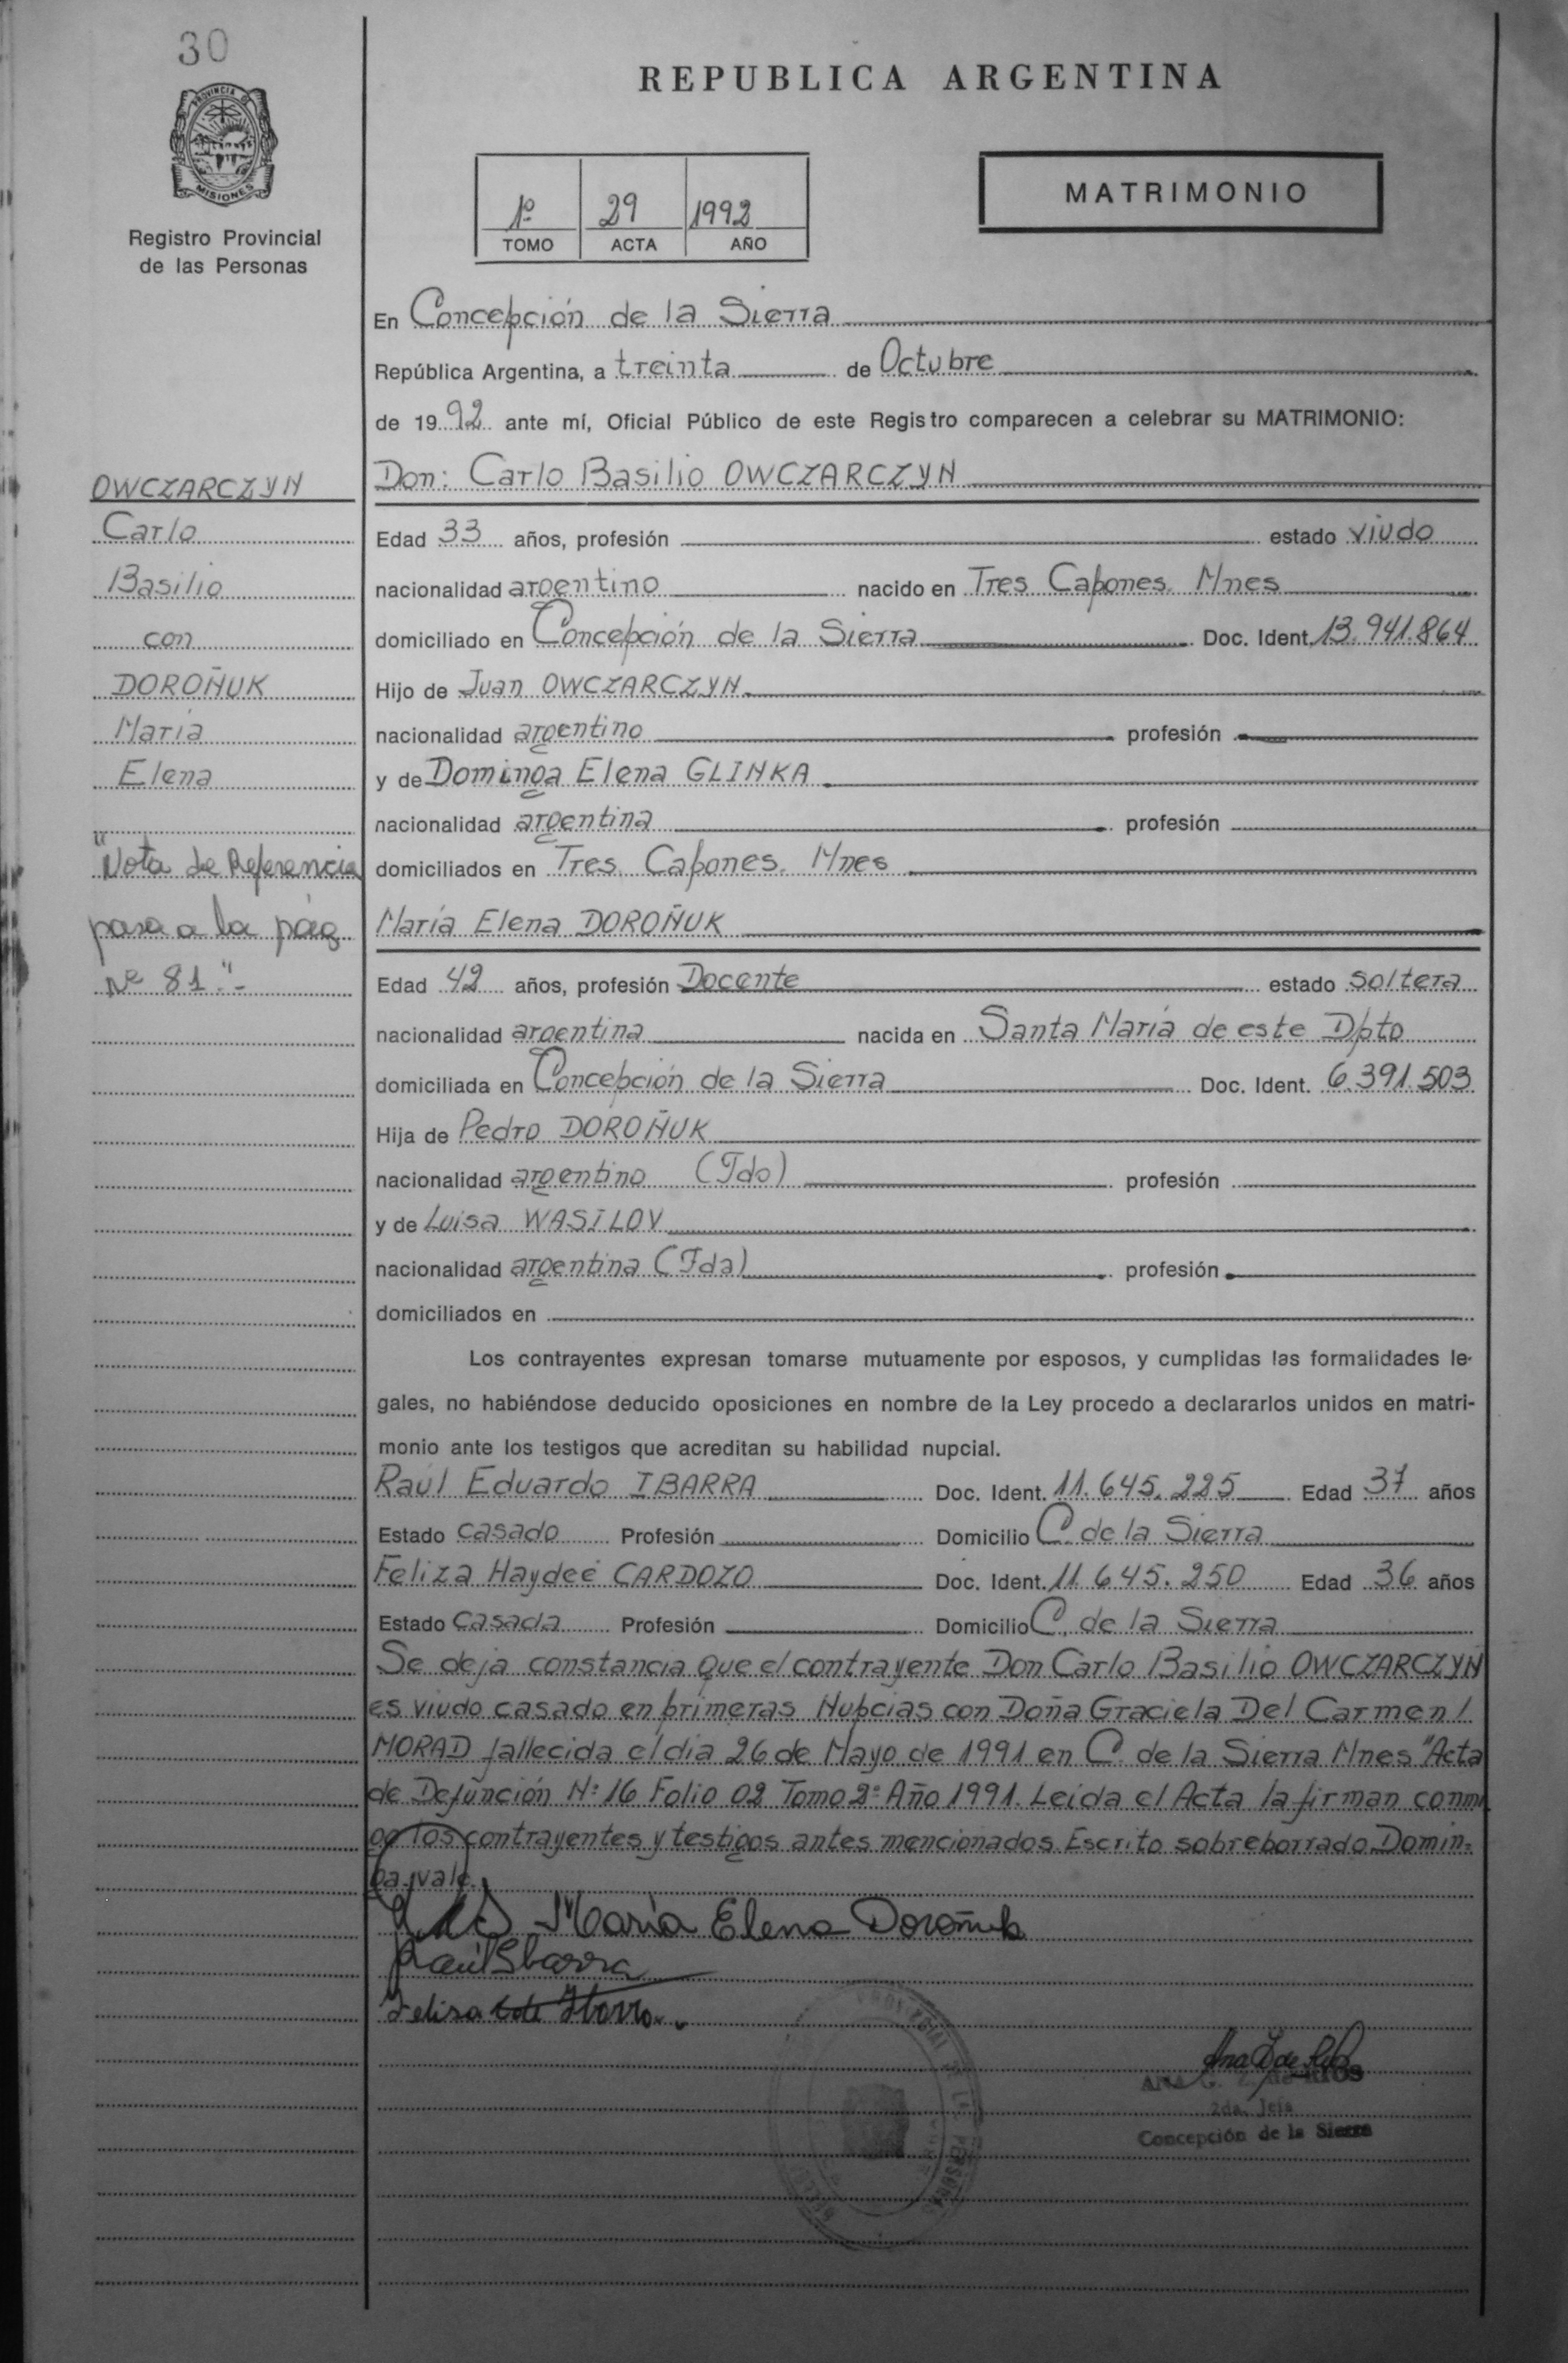 30
PROVINCIA DE
MISIONES
Registro Provincial
de las Personas
REPUBLICA ARGENTINA
1º 29 1992
TOMO ACTA AÑO
MATRIMONIO
En Concepción de la Sierra
República Argentina, a treinta de Octubre
de 1992 ante mí, Oficial Público de este Registro comparecen a celebrar su MATRIMONIO:
OWCZARCZYN
Carlo
Basilio
con
DOROÑUK
María
Elena
"Nota de Referencia
pasa a la pág
Nº 81"-
Don: Carlo Basilio OWCZARCZYN
Edad 33 años, profesión estado viudo
nacionalidad argentino nacido en Tres Capones. Mnes
domiciliado en Concepción de la Sierra Doc. Ident. 13.941.864
Hijo de Juan OWCZARCZYN
nacionalidad argentino profesión
y de Dominga Elena GLINKA
nacionalidad argentina profesión
domiciliados en Tres Capones. Mnes
María Elena DOROÑUK
Edad 42 años, profesión Docente estado soltera
nacionalidad argentina nacida en Santa María de este Dpto
domiciliada en Concepción de la Sierra Doc. Ident. 6.391.503
Hija de Pedro DOROÑUK
nacionalidad argentino (Fdo) profesión
y de Luisa WASILOV
nacionalidad argentina (Fda) profesión
domiciliados en
Los contrayentes expresan tomarse mutuamente por esposos, y cumplidas las formalidades le-
gales, no habiéndose deducido oposiciones en nombre de la Ley procedo a declararlos unidos en matri-
monio ante los testigos que acreditan su habilidad nupcial.
Raúl Eduardo IBARRA Doc. Ident. 11.645.225 Edad 37 años
Estado casado Profesión Domicilio C. de la Sierra
Feliza Haydeé CARDOZO Doc. Ident. 11.645.250 Edad 36 años
Estado casada Profesión Domicilio C. de la Sierra
Se deja constancia que el contrayente Don Carlo Basilio OWCZARCZYN
es viudo casado en primeras Nupcias con Doña Graciela Del Carmen/
MORAD fallecida el día 26 de Mayo de 1991 en C. de la Sierra Mnes "Acta
de Defunción N: 16 Folio 02 Tomo 2º Año 1991. Leída el Acta la firman conmi
go los contrayentes y testigos antes mencionados. Escrito sobreborrado Domin=
ga-vale.
María Elena Doroñuk
Raúl Ibarra
Felisa de Ibarra
Ana de
de RIOS
2da. Jefa
Concepción de la Sierra